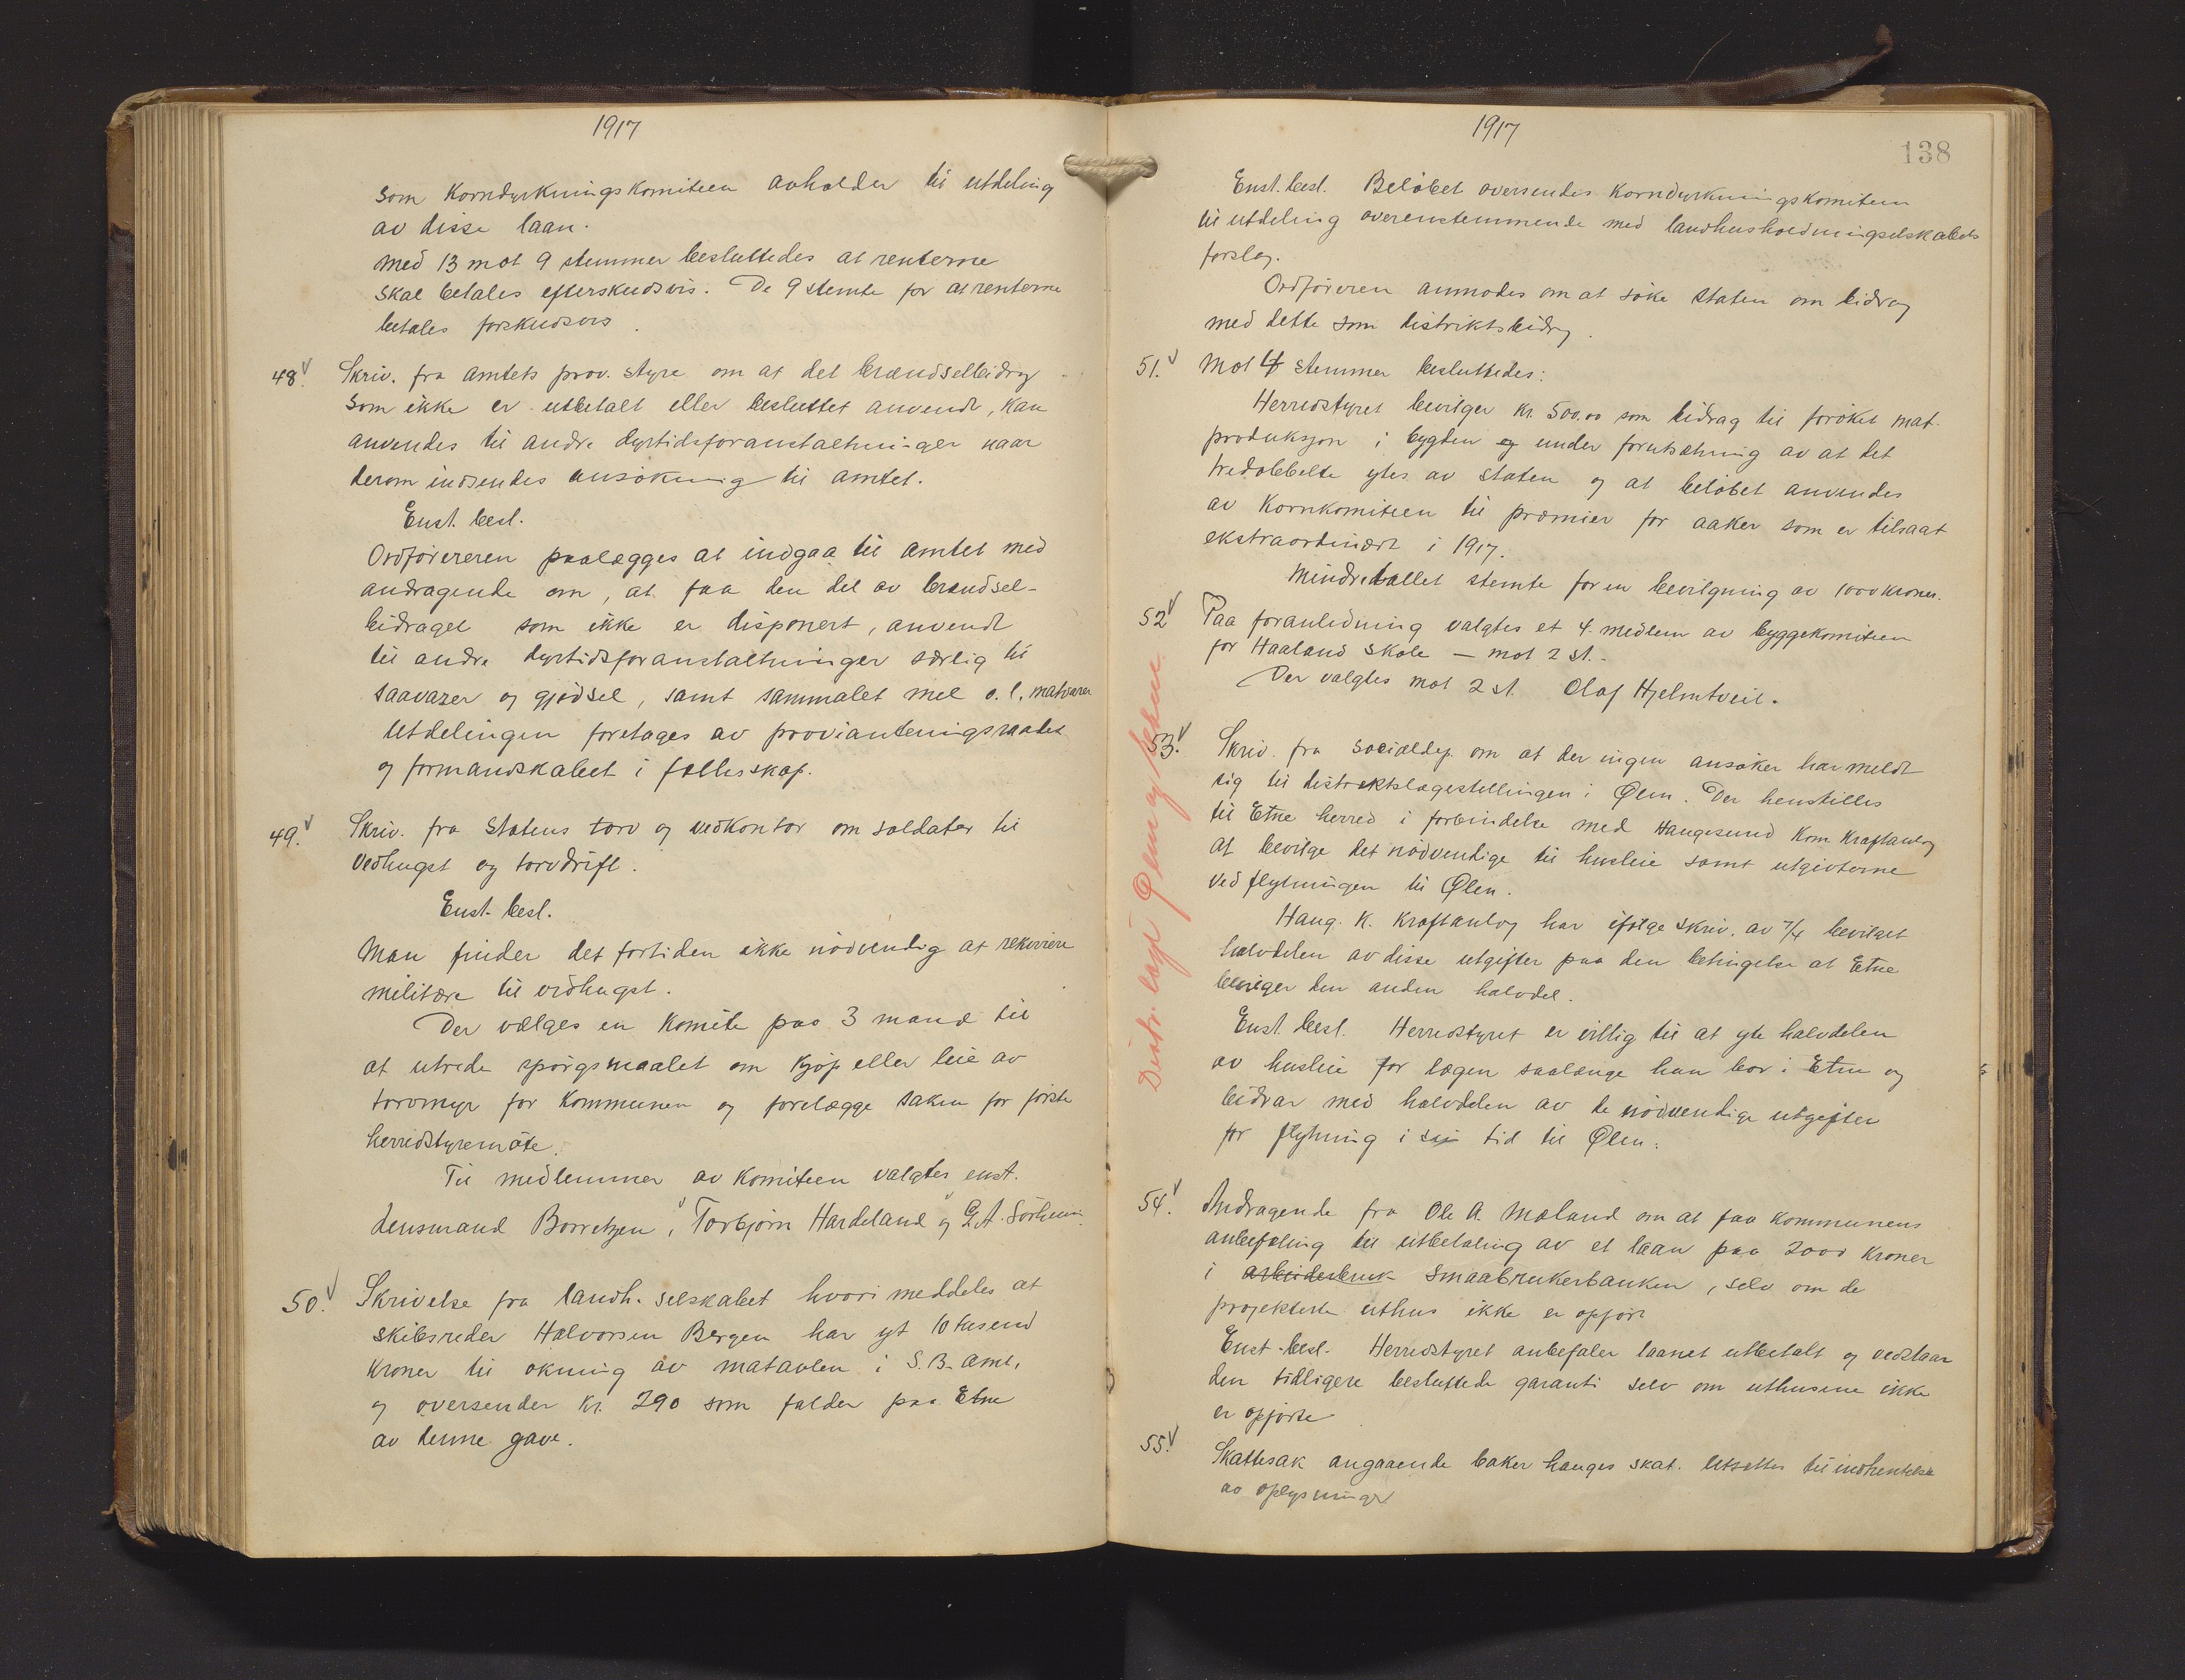 1917
som Korndyrkningskomiteen avholder til utdeling
av disse laan.
Med 13 mot 9 stemmer besluttedes at renterne
skal betales efterskudsvis. De 9 stemte for at renterne
betales forskudsvis.
48. Skriv. fra Amtets prov. styre om at det brændselbidrag
som ikke er utbetalt eller besluttet anvendt, kan
anvendes til andre dyrtidsforanstaltninger naar
derom indsendes ansökning til amtet.
Enst. besl.
Ordförereren paalægges at indgaa til Amtet med
andragende om, at faa den del av brændsel-
bidraget som ikke er disponert, anvendt
til andre dyrtidsforanstaltninger særlig til
saavarer og gjödsel, samt sammalet mel o. l. matvarer
Utdelingen foretages av provianteringsraadet
og formandskabet i fællesskap.
49. Skriv. fra Statens torv og vedkontor om soldater til
vedhugst og torvdrift.
Enst. besl.
Man finder det fortiden ikke nödvendig at rekvirere
militære til vedhugst.
Der vælges en Komite paa 3 mand til
at utrede spörgsmaalet om Kjöp eller leie av
torvmyr for Kommunen og forelægge saken for förste
herredstyremöte.
Til medlemmer av Komiteen valgtes enst.
Lensmand Borretzen, Torbjörn Hardeland og G. A. Sörheim
50. Skrivelse fra landh. selskabet hvori meddeles at
skibsreder Halvorsen Bergen har yt 10 tusend
Kroner til ökning av matavlen i S. B. Amt,
og oversender Kr. 290 som falder paa Etne
av denne gave.
1917
138
Enst. besl. Belöbet oversendes Korndyrkningskomiteen
til utdeling overenstemmende med landhusholdningselskabets
forslag.
Ordföreren anmodes om at söke Staten om bidrag
med dette som distriktsbidrag.
51. Mot 4 stemmer besluttedes:
Herredstyret bevilger Kr. 500.00 som bidrag til föröket mat-
produksjon i bygden og under forutsætning av at det
tredobbelte ytes av Staten og at belöbet anvendes
av Kornkomiteen til præmier for aaker som er tilsaat
ekstraordinært i 1917.
Mindretallet stemte for en bevilgning av 1000 Kroner.
52 Paa foranledning valgtes et 4. medlem av byggekomiteen
for Haaland Skole – mot 2 st.
Der valgtes mot 2 st. Olaf Hjelmtveit.
Distr. læge Ølen og Etne
53. Skriv. fra Socialdep. om at der ingen ansöker har meldt
sig til distriktslægestillingen i Ølen. Der henstilles
til Etne herred i forbindelse med Haugesund Kom. Kraftanlæg
at bevilge det nödvendige til husleie samt utgivterne
ved flytningen til Ølen.
Haug. K. Kraftanlæg har ifölge skriv. av 7/4 bevilget
halvdelen av disse utgifter paa den betingelse at Etne
bevilger den anden halvdel.
Enst. besl. Herredstyret er villig til at yte halvdelen
av husleie for lægen saalænge han bor i Etne og
bidrar med halvdelen av de nödvendige utgifter
for flytning i sin tid til Ølen.
54. Andragende fra Ole A. Mæland om at faa Kommunens
anbefaling til utbetaling av et laan paa 2000 Kroner
i arbeiderbruk smaabrukerbanken, selv om de
projekterte uthus ikke er opfört
Enst. besl. Herredstyret anbefaler laanet utbetalt og vedstaar
den tidligere besluttede garanti selv om uthusene ikke
er opförte
55. Skattesak angaaende baker Hauges skat. Utsættes til indhentelse
av oplysninger